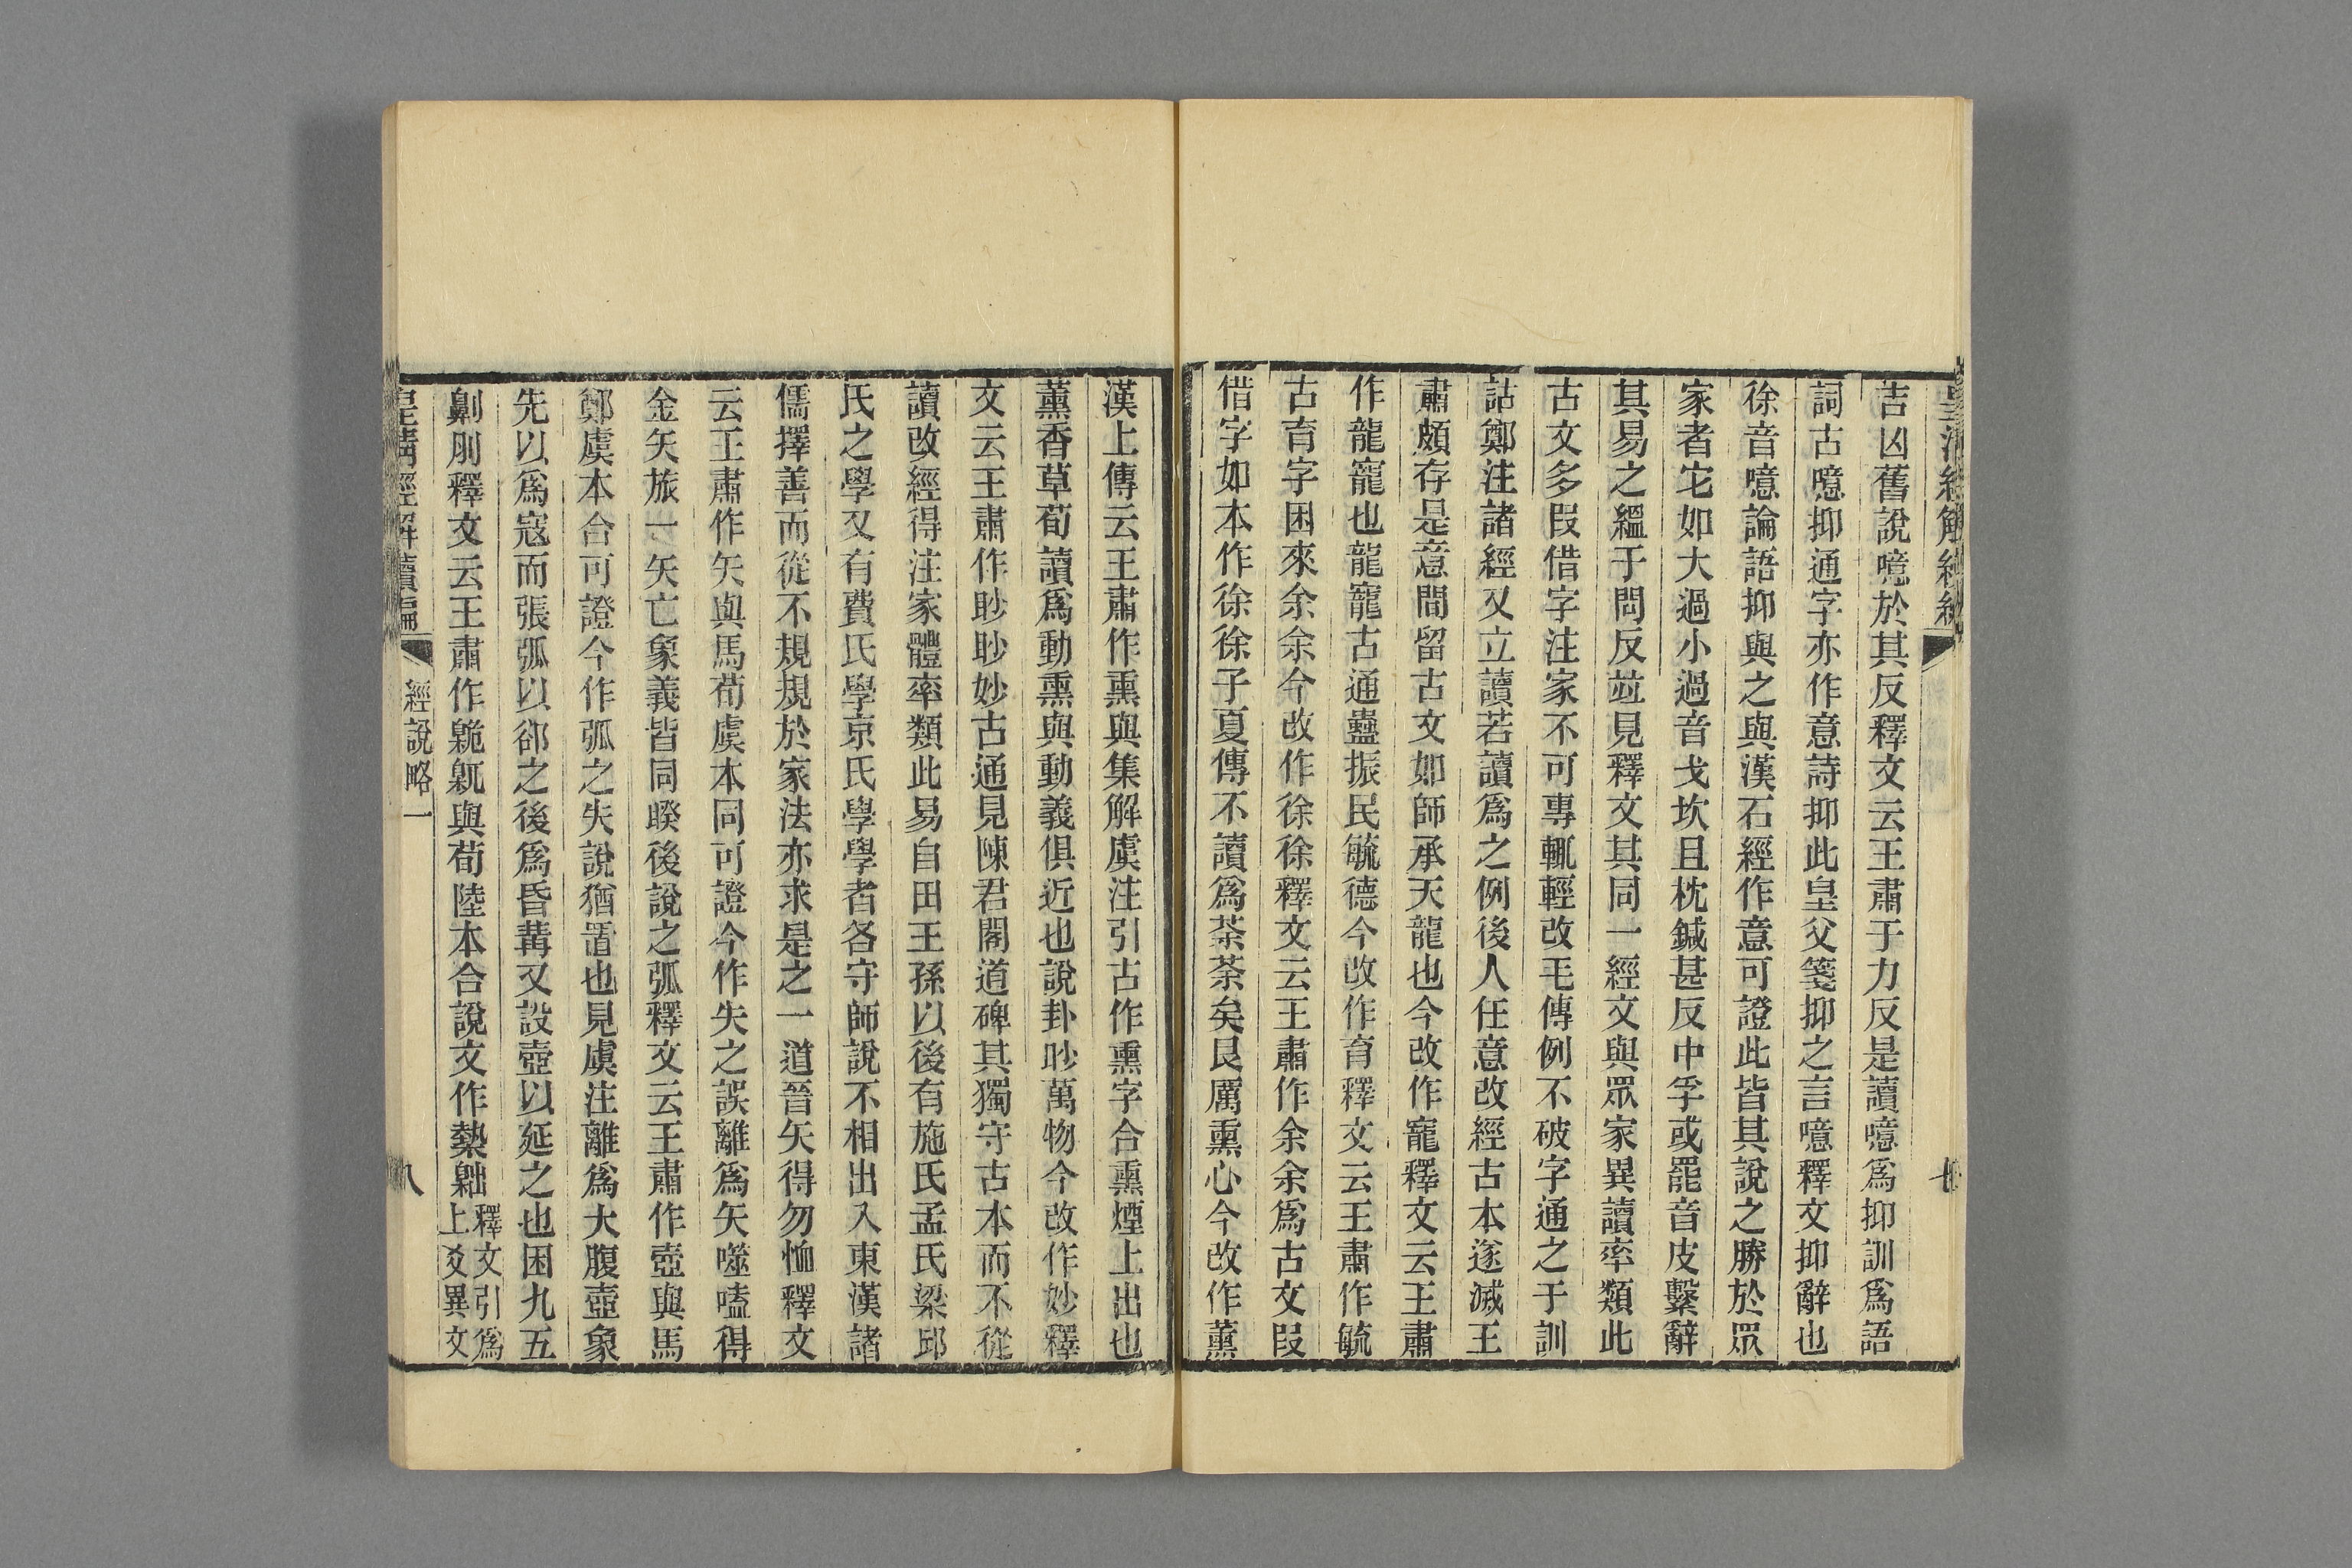 吉凶舊說噫於其反釋文云王肅于力反是讀噫爲抑訓爲語
詞古噫抑通字亦作意詩抑此皇父箋抑之言噫釋文抑辭也
徐音噫論語抑與之與漢石經作意可證此皆其說之勝於眾
家者它如大過小過音戈坎且枕鍼甚反中孚或罷音皮繫辭
其易之縕于問反竝見釋文其同一經文與眾家異讀率類此
古文多叚借字注家不可專輒輕改毛傳例不破字通之于訓
詁鄭注諸經又立讀若讀爲之例後人任意改經古本遂滅王
肅頗存是意間留古文如師承天龍也今改作寵釋文云王肅
作龍寵也龍寵古通蠱振民毓德今改作育釋文云王肅作毓
古育字困來余余今改作徐徐釋文云王肅作余余爲古文叚
借字如本作徐徐子夏傳不讀爲荼荼矣艮厲熏心今改作薰
漢上傳云王肅作熏與集解虞注引古作熏字合熏煙上出也
薰香草荀讀爲動熏與動義俱近也說卦眇萬物今改作妙釋
文云王肅作眇眇妙古通見陳君閣道碑其獨守古本而不從
讀改經得注家體率類此易自田王孫以後有施氏孟氏梁邱
氏之學又有費氏學京氏學學者各守師說不相出入東漢諸
儒擇善而從不規規於家法亦求是之一道晉矢得勿恤釋文
云王肅作矢與馬荀虞本同可證今作失之誤離爲矢噬嗑得
金矢旅一矢亡象義皆同睽後說之弧釋文云王肅作壺與馬
鄭虞本合可證今作弧之失說猶置也見虞注離爲大腹壺象
先以爲寇而張弧以郤之後爲昏冓又設壺以延之也困九五
劓刖釋文云王肅作臲㲉與荀陸本合說文作槷黜釋文引爲
上爻異文
皇清經解續編
經說略一
八